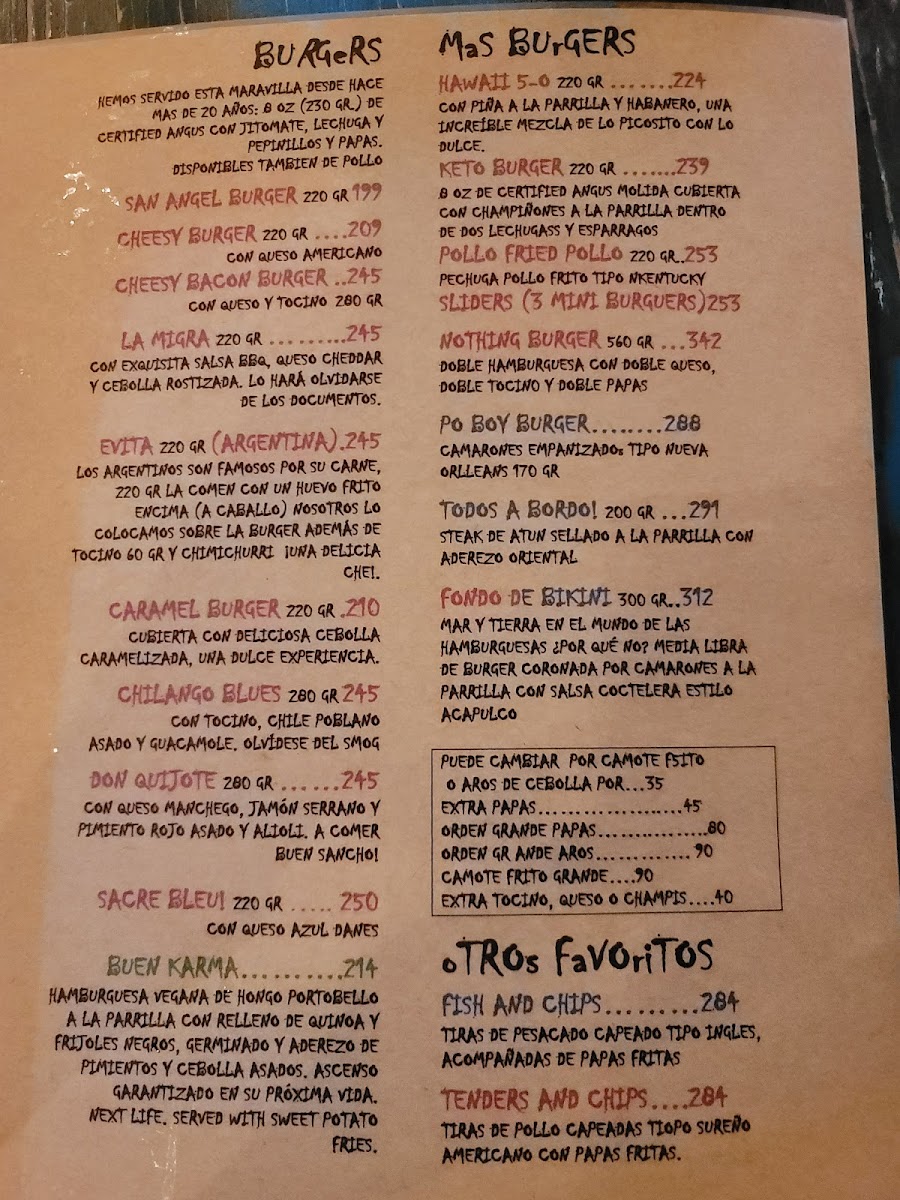 BURGeRS
HEMOS SERVIDO ESTA MARAVILLA DESDE HACE
MAS DE 20 AÑOS: 8 OZ (230 GR.) DE
CERTIFIED ANGUS CON JITOMATE, LECHUGA Y
PEPINILLOS Y PAPAS.
DISPONIBLES TAMBIEN DE POLLO
SAN ANGEL BURGER 220 GR 199
CHEESY BURGER 220 GR ....209
CON QUESO AMERICANO
CHEESY BACON BURGER ..245
CON QUESO Y TOCINO 280 GR
LA MIGRA 220 GR .........245
CON EXQUISITA SALSA BBQ, QUESO CHEDDAR
Y CEBOLLA ROSTIZADA. LO HARÁ OLVIDARSE
DE LOS DOCUMENTOS.
EVITA 220 GR (ARGENTINA).245
LOS ARGENTINOS SON FAMOSOS POR SU CARNE,
220 GR LA COMEN CON UN HUEVO FRITO
ENCIMA (A CABALLO) NOSOTROS LO
COLOCAMOS SOBRE LA BURGER ADEMÁS DE
TOCINO 60 GR Y CHIMICHURRI ¡UNA DELICIA
CHE!.
CARAMEL BURGER 220 GR .210
CUBIERTA CON DELICIOSA CEBOLLA
CARAMELIZADA, UNA DULCE EXPERIENCIA.
CHILANGO BLUES 280 GR 245
CON TOCINO, CHILE POBLANO
ASADO Y GUACAMOLE. OLVÍDESE DEL SMOG
DON QUIJOTE 280 GR ......245
CON QUESO MANCHEGO, JAMÓN SERRANO Y
PIMIENTO ROJO ASADO Y ALIOLI. A COMER
BUEN SANCHO!
SACRE BLEU! 220 GR ..... 250
CON QUESO AZUL DANES
BUEN KARMA..........214
HAMBURGUESA VEGANA DE HONGO PORTOBELLO
A LA PARRILLA CON RELLENO DE QUINOA Y
FRIJOLES NEGROS, GERMINADO Y ADEREZO DE
PIMIENTOS Y CEBOLLA ASADOS. ASCENSO
GARANTIZADO EN SU PRÓXIMA VIDA.
NEXT LIFE. SERVED WITH SWEET POTATO
FRIES.
MaS BUrGERS
HAWAII 5-0 220 GR .......224
CON PIÑA A LA PARRILLA Y HABANERO, UNA
INCREÍBLE MEZCLA DE LO PICOSITO CON LO
DULCE.
KETO BURGER 220 GR .......239
8 OZ DE CERTIFIED ANGUS MOLIDA CUBIERTA
CON CHAMPIÑONES A LA PARRILLA DENTRO
DE DOS LECHUGASS Y ESPARRAGOS
POLLO FRIED POLLO 220 GR..253
PECHUGA POLLO FRITO TIPO NKENTUCKY
SLIDERS (3 MINI BURGUERS)253
NOTHING BURGER 560 GR ...342
DOBLE HAMBURGUESA CON DOBLE QUESO,
DOBLE TOCINO Y DOBLE PAPAS
PO BOY BURGER........288
CAMARONES EMPANIZADOs TIPO NUEVA
ORLLEANS 170 GR
TODOS A BORDO! 200 GR ...291
STEAK DE ATUN SELLADO A LA PARRILLA CON
ADEREZO ORIENTAL
FONDO DE BIKINI 300 GR..312
MAR Y TIERRA EN EL MUNDO DE LAS
HAMBURGUESAS ¿POR QUÉ NO? MEDIA LIBRA
DE BURGER CORONADA POR CAMARONES A LA
PARRILLA CON SALSA COCTELERA ESTILO
ACAPULCO
PUEDE CAMBIAR POR CAMOTE F5ITO
O AROS DE CEBOLLA POR...35
EXTRA PAPAS....................45
ORDEN GRANDE PAPAS...............80
ORDEN GR ANDE AROS............. 90
CAMOTE FRITO GRANDE....90
EXTRA TOCINO, QUESO O CHAMPIS....40
oTROs FaVORiTOS
FISH AND CHIPS.........284
TIRAS DE PESACADO CAPEADO TIPO INGLES,
ACOMPAÑADAS DE PAPAS FRITAS
TENDERS AND CHIPS....284
TIRAS DE POLLO CAPEADAS TIOPO SUREÑO
AMERICANO CON PAPAS FRITAS.